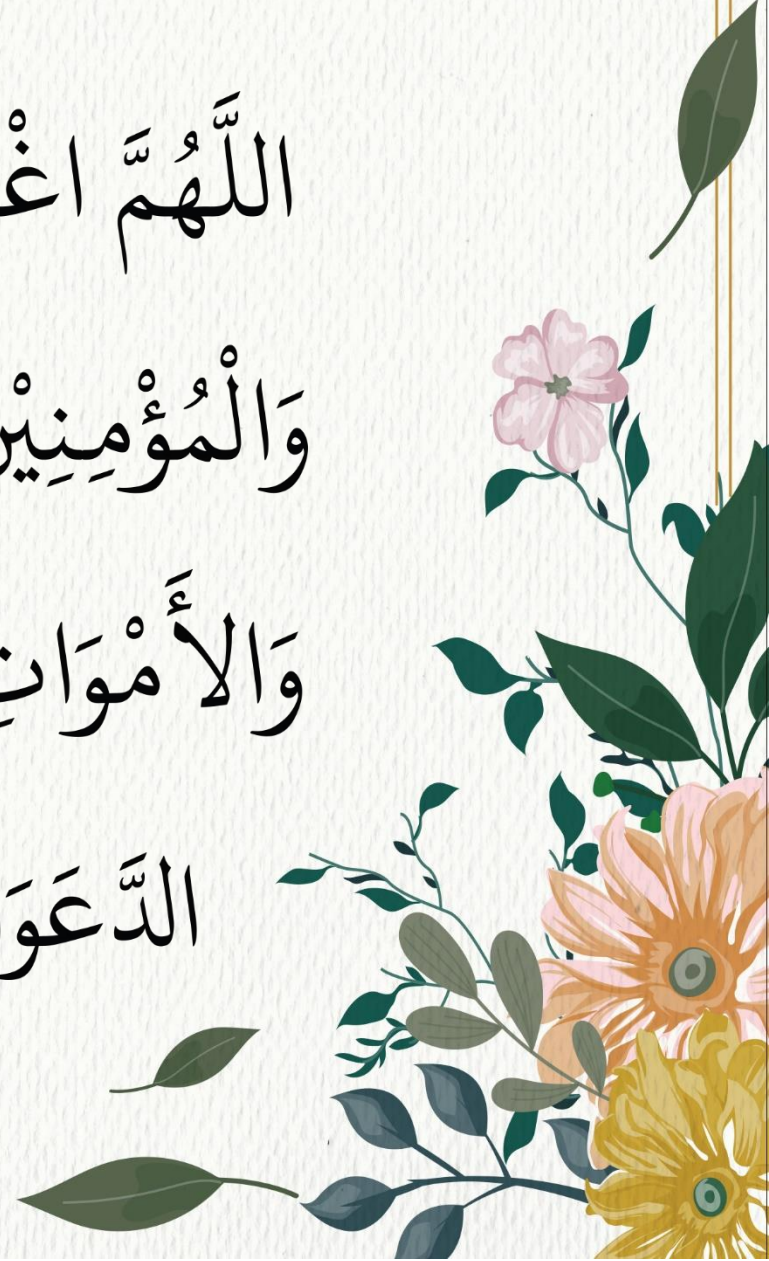 اللَّهُمَّ اغْ
وَالْمُؤْمِنِيْن
وَالأَمْوَاتِ
الدَّعَوَ